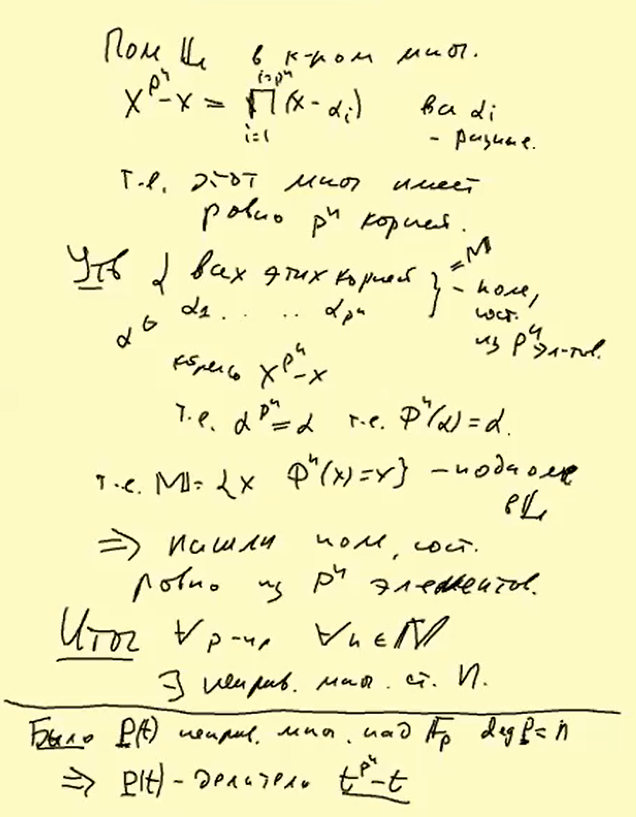 Поле 𝕃 в к-ром мног.
x^{p^n} - x = ∏_{i=1}^{i=p^n} (x - α_i) все α_i
- разные.
т.е. этот мног имеет
ровно p^n корней.
Утв { всех этих корней } = M - поле,
α_1 . . . . α_{p^n} сост.
α ← из p^n эл-тов.
корень x^{p^n} - x
т.е. α^{p^n} = α т.е. Φ^n(α) = α.
т.е. M = { x Φ^n(x) = x } - подполе
в 𝕃
⇒ нашли поле, сост.
ровно из p^n элементов.
Итог ∀ p - пр ∀ n ∈ ℕ
∃ неприв. мног. ст. n.
Было P(t) неприв. мног. над 𝔽_p deg P = n
⇒ P(t) - делитель t^{p^n} - t